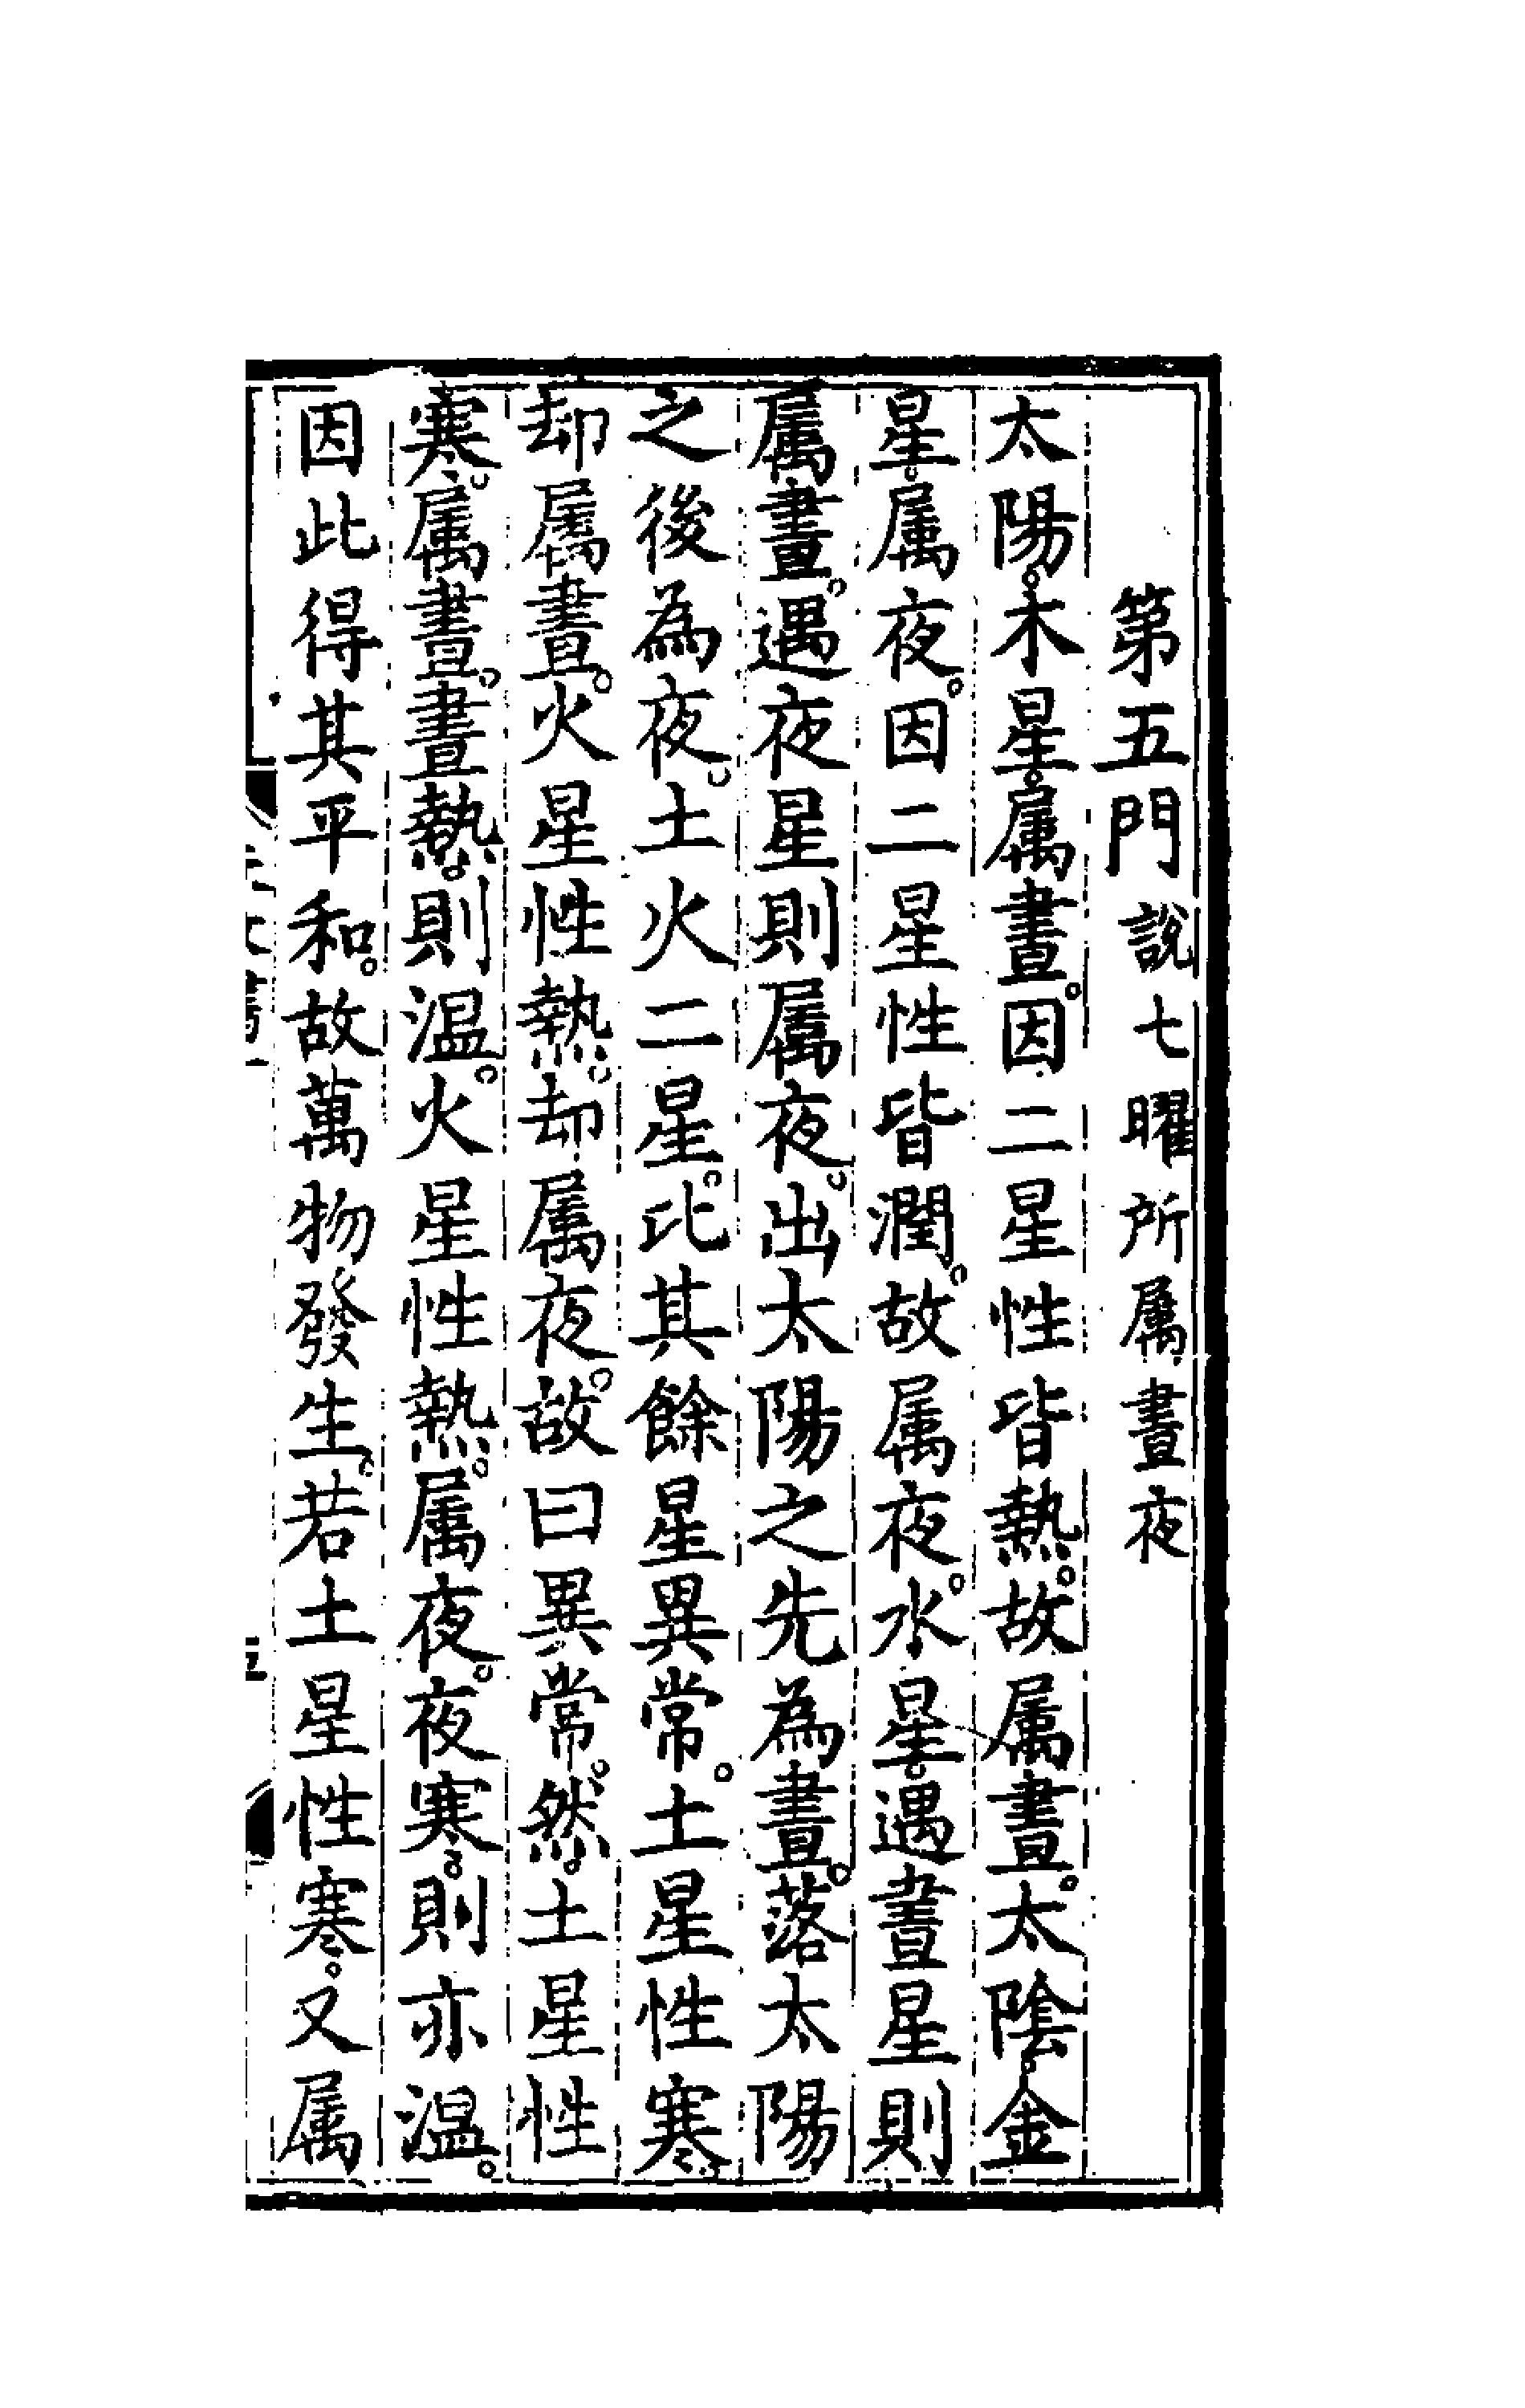 第五門說七曜所属晝夜
太陽。木星。属晝。因二星性皆熱。故属晝。太陰。金
星。属夜。因二星性皆潤。故属夜。水星。遇晝星則
属晝。遇夜星則属夜。出太陽之先為晝。落太陽
之後為夜。土火二星。比其餘星異常。土星性寒。
却属晝。火星性熱。却属夜。故曰異常。然。土星性
寒。属晝。晝熱。則温。火星性熱。属夜。夜寒。則亦温。
因此得其平和。故萬物發生。若土星性寒。又属